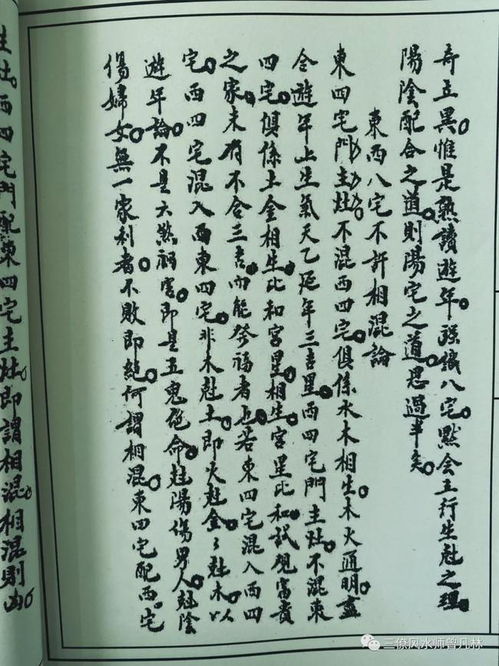 奇立異惟是熟讀遊年强識八宅黙会五行生尅之理
陽陰配合之道則陽宅之道思過半矣
東西八宅不許相混論
東四宅門主灶不混西四宅俱係水木相生木火通明盡
合遊年上生氣天乙延年三吉星西四宅門主灶不混東
四宅俱係土金相生比和宮星相生宮星比和試观富貴
之家未有不合三吉而能發福者也若東四宅混入西四
宅西四宅混入西東四宅非木尅土即火尅金金尅木以
遊年論不是六煞禍害即是五鬼絶命尅陽傷男人尅陰
傷婦女無一家利者不敗即絶何謂相混東四宅配西四宅
主灶西四宅門配東四宅主灶即謂相混相混則凶
三僚风水师曾凡林